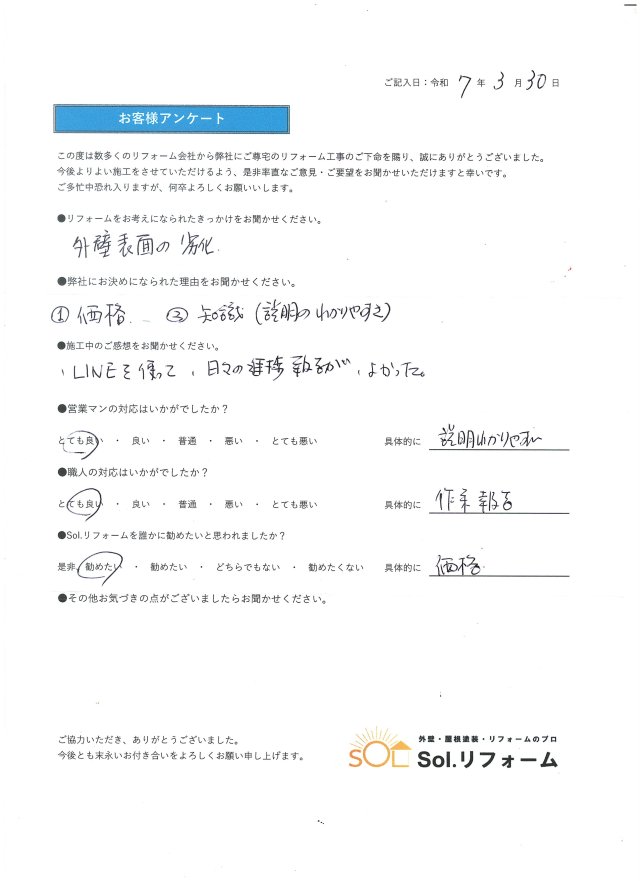 ご記入日：令和 7 年 3 月 30 日
お客様アンケート
この度は数多くのリフォーム会社から弊社にご尊宅のリフォーム工事のご下命を賜り、誠にありがとうございました。
今後よりよい施工をさせていただけるよう、是非率直なご意見・ご要望をお聞かせいただけますと幸いです。
ご多忙中恐れ入りますが、何卒よろしくお願いいします。
●リフォームをお考えになられたきっかけをお聞かせください。
外壁表面の劣化
●弊社にお決めになられた理由をお聞かせください。
① 価格 ② 知識（説明のわかりやすさ）
●施工中のご感想をお聞かせください。
、LINEを使って、日々の進捗報告が、よかった。
●営業マンの対応はいかがでしたか？
とても良い ・ 良い ・ 普通 ・ 悪い ・ とても悪い 具体的に 説明わかりやすい
●職人の対応はいかがでしたか？
とても良い ・ 良い ・ 普通 ・ 悪い ・ とても悪い 具体的に 作業報告
●Sol.リフォームを誰かに勧めたいと思われましたか？
是非、勧めたい ・ 勧めたい ・ どちらでもない ・ 勧めたくない 具体的に 価格
●その他お気づきの点がございましたらお聞かせください。
ご協力いただき、ありがとうございました。
今後とも末永いお付き合いをよろしくお願い申し上げます。
SOL
外壁・屋根塗装・リフォームのプロ
Sol.リフォーム